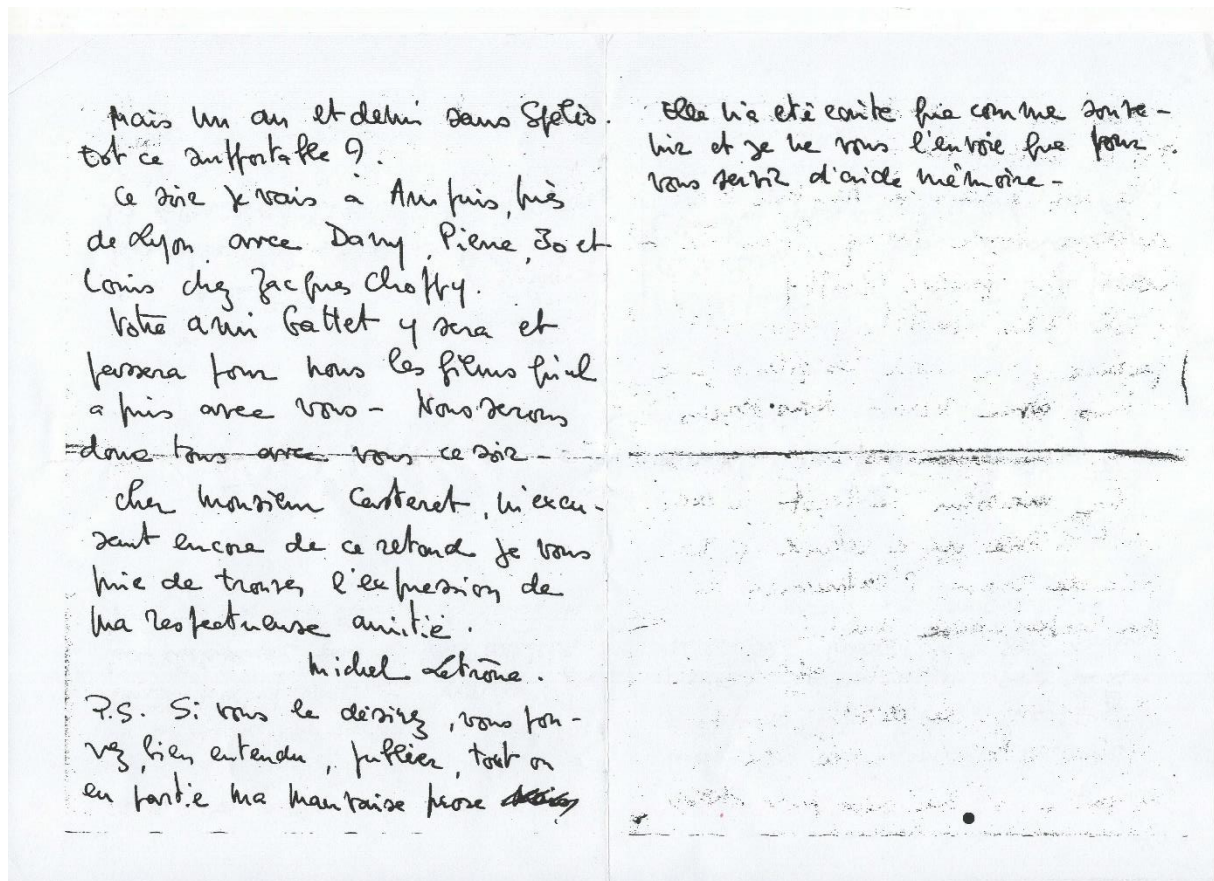 Mais un an et demi sans Spéléo.
Est ce supportable ?.
Ce soir je vais à Ampuis, près
de Lyon avec Dany, Pierre, Jo et
Louis chez Jacques Choppy.
Votre ami Gattet y sera et
passera pour nous les films qu'il
a pris avec vous - Nous serons
donc tous avec vous ce soir -
Cher Monsieur Casteret, m'excu-
sant encore de ce retard je vous
prie de trouver l'expression de
ma respectueuse amitié.
Michel Letrône.
P.S. Si vous le désirez, vous pou-
vez, bien entendu, publier, tout ou
en partie ma mauvaise prose
Elle n'a été écrite que comme souve-
nir et je ne vous l'envoie que pour
vous servir d'aide mémoire -